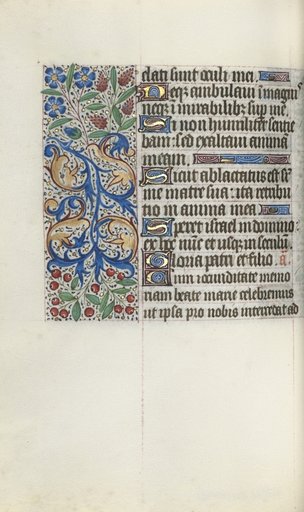 elati sunt oculi mei.
Neqz ambulaui i magnis
neqz i mirabilibz sup me.
Si non humiliter sentie
bam: sed exaltaui animã
meam.
Sicut ablactatus est sr̃
me matre sua: ita retribu
tio in anima mea
Speret israel in domino:
ex hoc nũc et usqz in seculũ.
Gloria patri et filio. a.
Cum iocunditate memo
riam beate marie celebremus
ut ipsa pro nobis intercedat ad